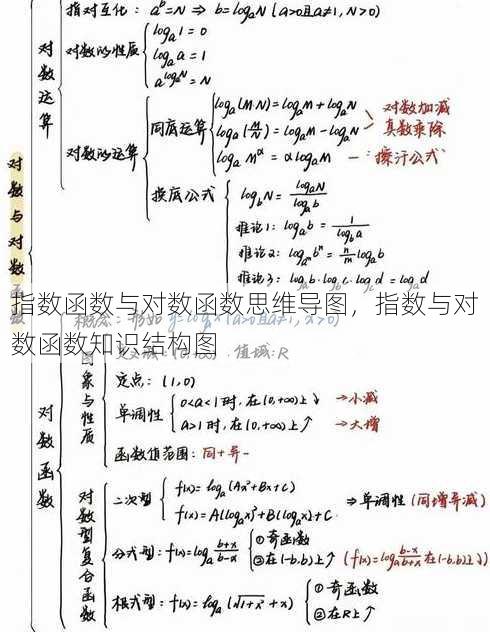 指对互化：a^b=N ⇒ b=log_a N (a>0且a≠1, N>0)
对数运算
对数的性质
log_a 1=0
log_a a=1
a^{log_a N}=N
对数的运算
同底运算
log_a(M·N)=log_a M+log_a N
log_a(M/N)=log_a M-log_a N
log_a M^α=αlog_a M
对数加减
真数乘除
擦汗公式
换底公式
log_b N=log_a N/log_a b
推论1：log_a b=1/log_b a
推论2：log_{a^m} b^n=n/m log_a b
推论3：log_a b·log_b c·log_c d=log_a d
对数与对数函
指数函数与对数函数思维导图，指数与对
数函数知识结构图
概念：形如y=log_a x (a>0且a≠1, x>0)
值域：R
对数函数
图象与性质
定点：(1,0)
单调性
0<a<1时，在(0,+∞)上↓ →小减
a>1时，在(0,+∞)上↑ →大增
函数值范围：同+异-
对数型复合函数
二次型
f(x)=log_a(Ax²+Bx+C)
f(x)=A(log_a x)²+B(log_a x)+C
⇒单调性(同增异减)
分式型：f(x)=log_a b+x/b-x
①奇函数
②在(-b,b)上↑ (f(x)=log_a b-x/b+x 在(-b,b)上↓)
根式型：f(x)=log_a(√1+x²+x)
①奇函数
②在R上↑